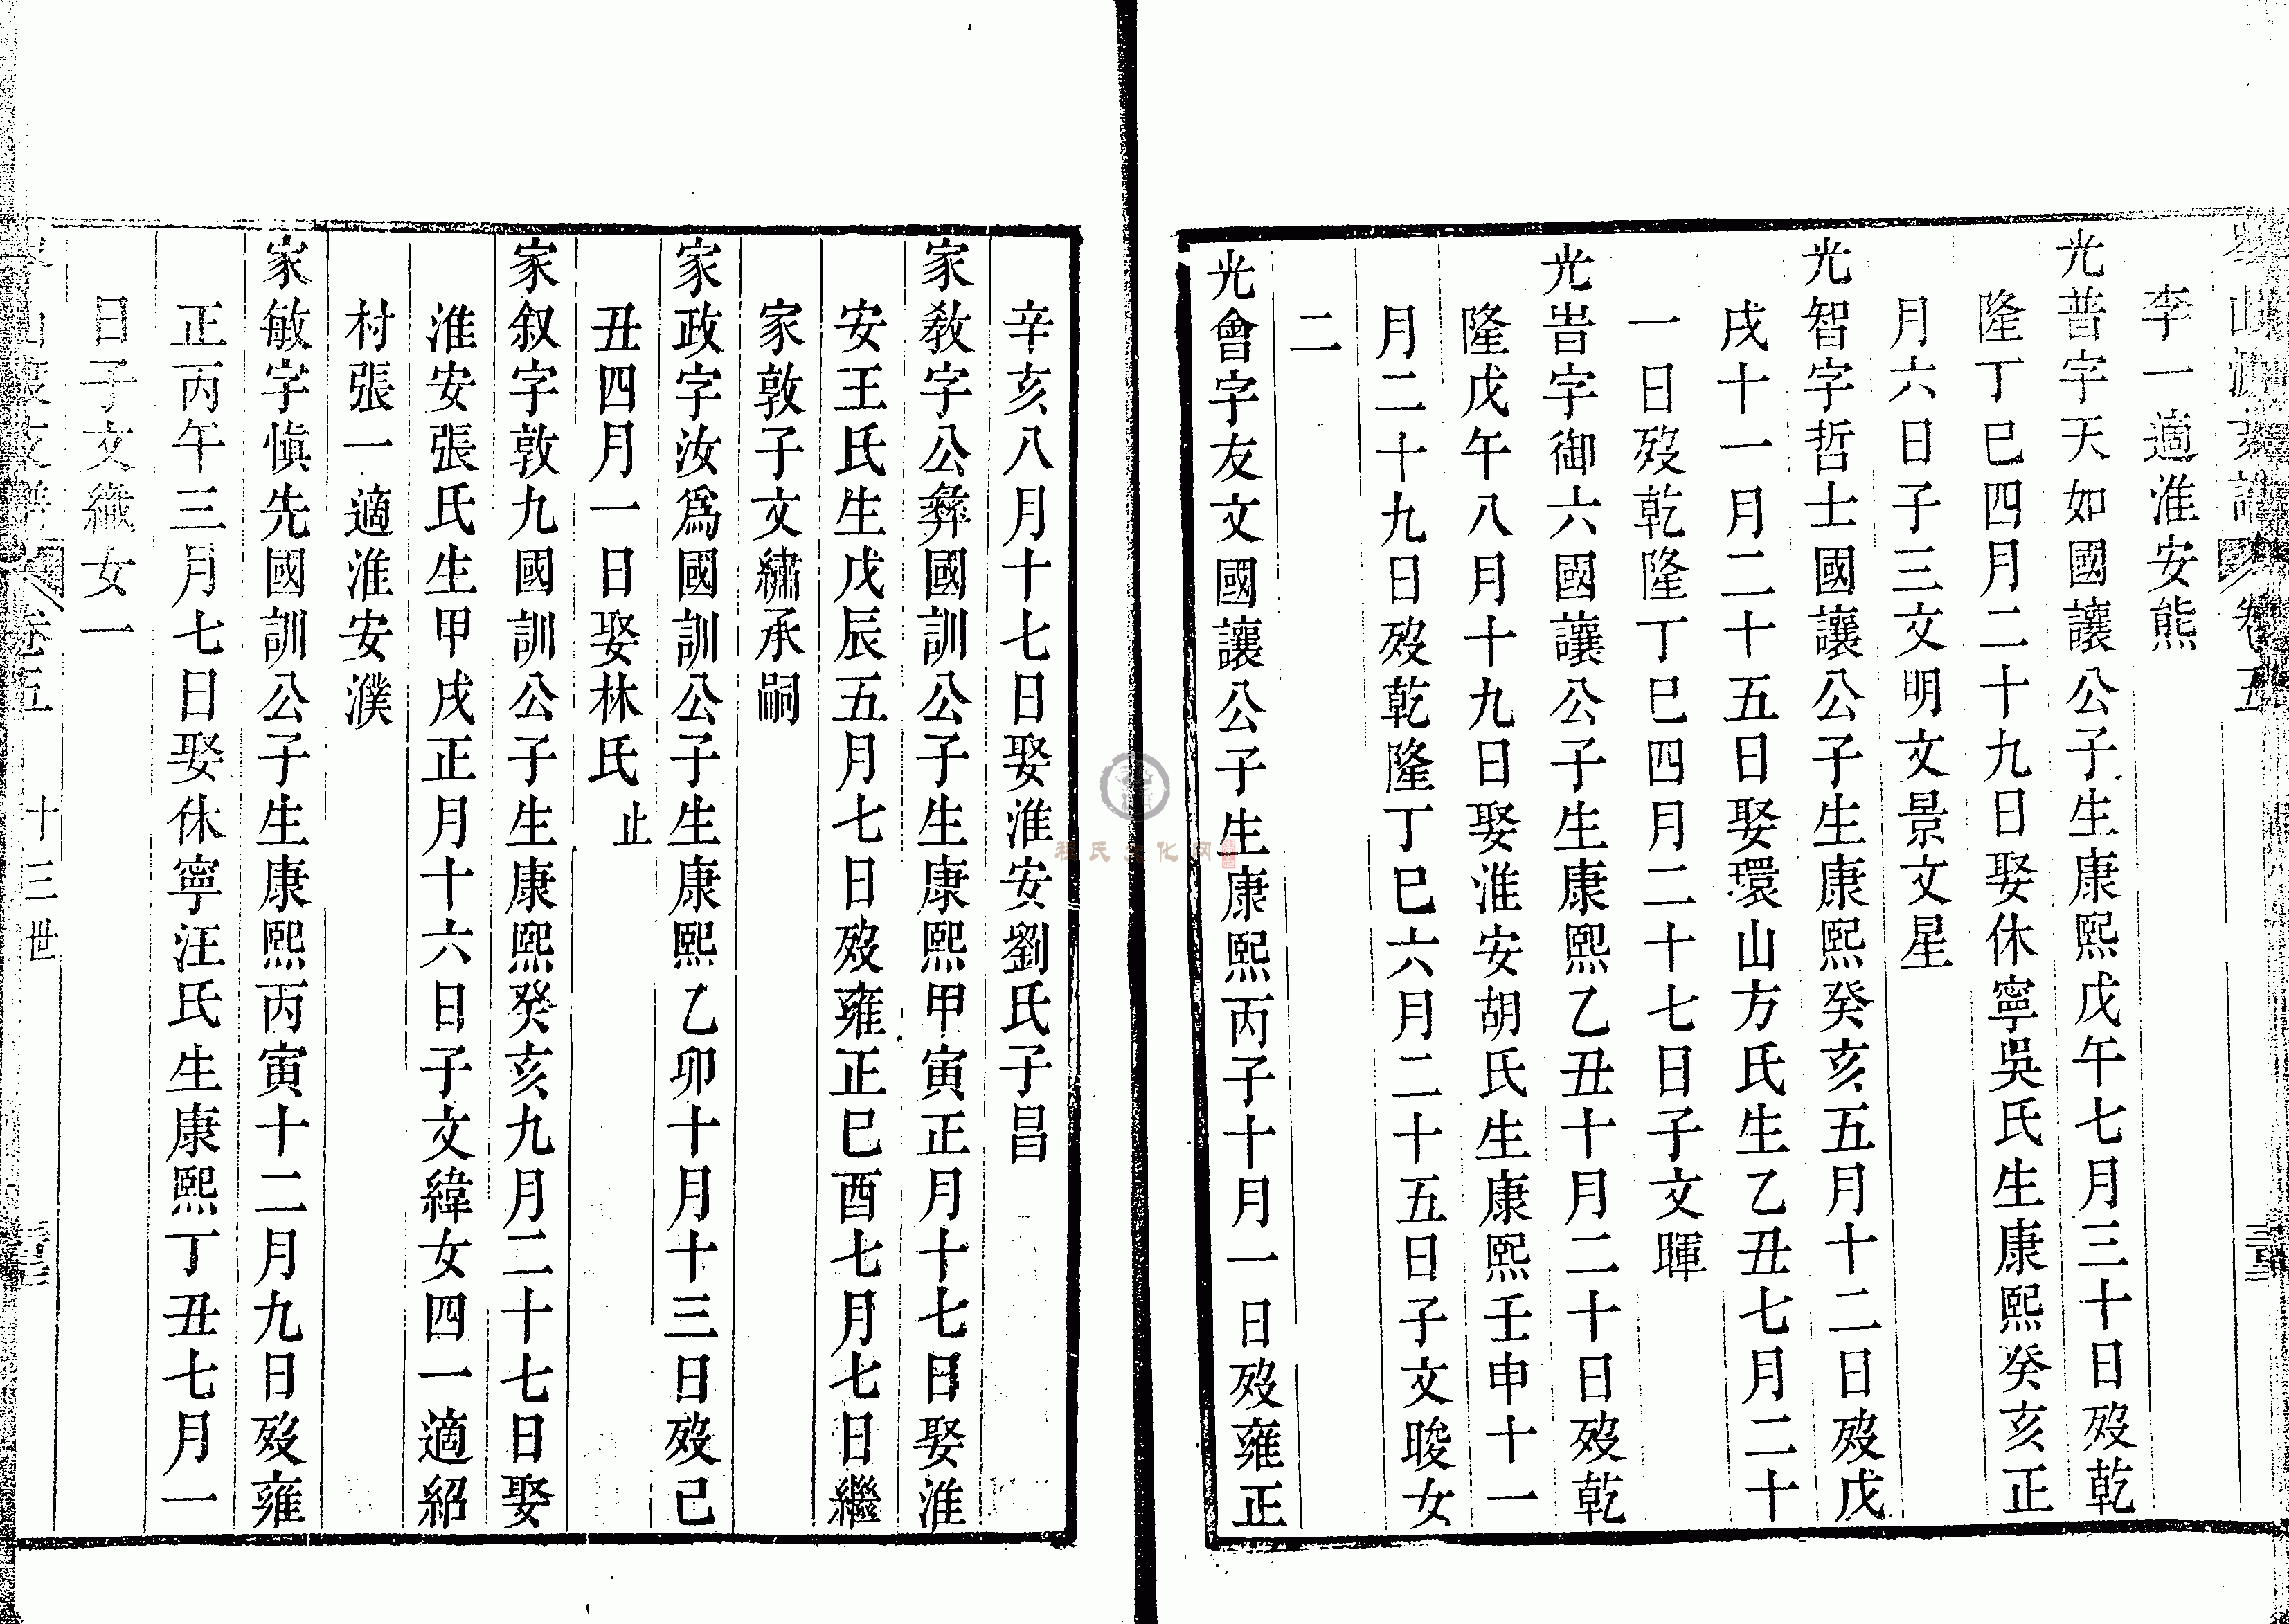 卷五
李一適淮安熊
光普字天如國讓公子生康熙戊午七月三十日歿乾
隆丁巳四月二十九日娶休寧吳氏生康熙癸亥正
月六日子三文明文景文星
光智字哲士國讓公子生康熙癸亥五月十二日歿戊
戌十一月二十五日娶環山方氏生乙丑七月二十
一日歿乾隆丁巳四月二十七日子文暉
光旹字御六國讓公子生康熙乙丑十月二十日歿乾
隆戊午八月十九日娶淮安胡氏生康熙壬申十一
月二十九日歿乾隆丁巳六月二十五日子文晙女
二
光會字友文國讓公子生康熙丙子十月一日歿雍正
辛亥八月十七日娶淮安劉氏子昌
家敎字公彝國訓公子生康熙甲寅正月十七日娶淮
安王氏生戊辰五月七日歿雍正巳酉七月七日繼
家敦子文繡承嗣
家政字汝爲國訓公子生康熙乙卯十月十三日歿己
丑四月一日娶林氏 止
家叙字敦九國訓公子生康熙癸亥九月二十七日娶
淮安張氏生甲戌正月十六日子文緯女四一適紹
村張一適淮安濮
家敏字愼先國訓公子生康熙丙寅十二月九日歿雍
正丙午三月七日娶休寧汪氏生康熙丁丑七月一
日子文織女一
卷五 十三世
程氏文化网